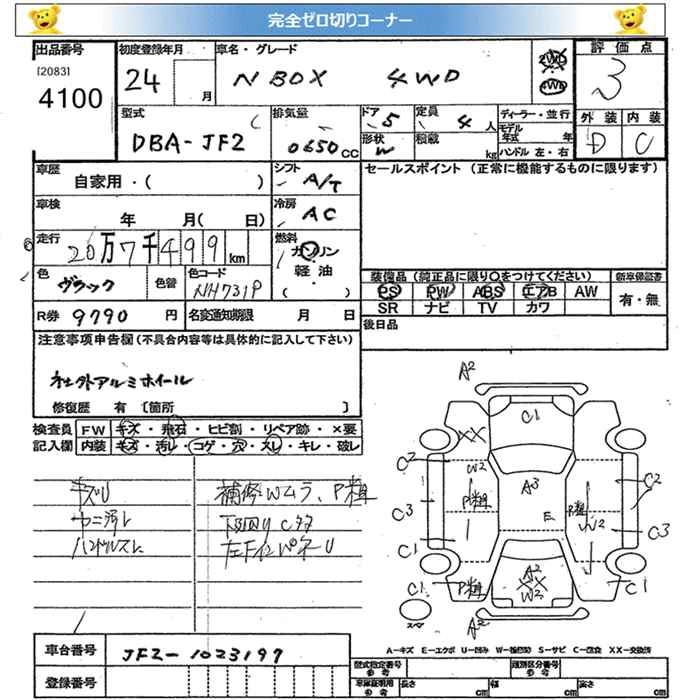 完全ゼロ切りコーナー
出品番号 初度登録年月 車名・グレード 評価点
[2083]
4100 24 月 N BOX 4WD 3
型式 排気量 ドア 定員 ディーラー・並行 外装 内装
DBA-JF2 0650 CC 5 4 人 モデル年式 年 D C
形状 W 積載 kg ハンドル 左・右
車歴 シフト セールスポイント(正常に機能するものに限ります)
自家用・( ) A/T
車検 冷房
年 月( 日) AC
走行 燃料
20万7千499km ガソリン
軽油
( )
色 色替 色コード 装備品(純正品に限り○をつけてください) 新車保証書
ブラック NH731P PS PW ABS エアB AW 有・無
SR ナビ TV カワ
R券 9790 円 名変通知期限 月 日 後日品
注意事項申告欄(不具合内容等は具体的に記入して下さい)
社外アルミホイール
修復歴 有 [箇所 ]
検査員 FW キズ・飛石・ヒビ割・リペア跡・×要
記入欄 内装 キズ・汚レ・コゲ・穴・スレ・キレ・破レ
キズU 補修Wムラ、P粗
ウニ汚レ 下回りCサタ
ハンドルスレ
A2
C1
XX
W2
C2 C2
P粗 A3 P粗
C3 E W2 C3
C1 A2
XX
W2
C1 P粗 C1
スペア A2
A-キズ E-エクボ U-凹み W-補修跡 S-サビ C-腐食 XX-交換済
車台番号 JF2-1023197
登録番号
型式指定番号 参考 類別区分番号 参考
車庫証明用 参考 長さ cm 幅 cm 高さ cm